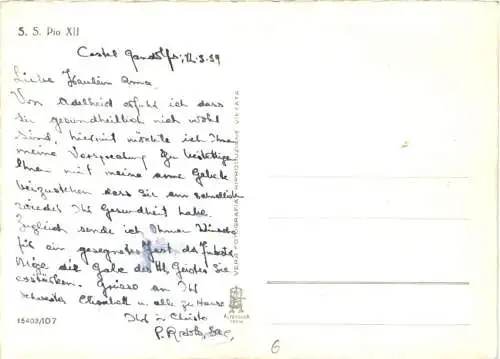 S. S. Pio XII
Castel Gandolfo, 12.8.59
Liebe Fräulein Anna.
Von Adelheid erfuhr ich dass
sie gesundheitlich nich wohl
sind, hiermit möchte ich Ihnen
meine Versprechung zu bestätigen
Ihnen mit meine arme Gebete
beizustehen dass Sie am schnellsten
wieder Ihr Gesundheit habe.
Zugleich sende ich Ihnen
für ein gesegnetes Fest da
Möge die Gabe des Hl. Geistes Sie
erstärken. Grüsse an Ihr
Schwester Elisabeth u. alle zu Hause
Ihr in Christo
P.
VERA FOTOGRAFIA - RIPRODUZIONE VIETATA
15403/107
6